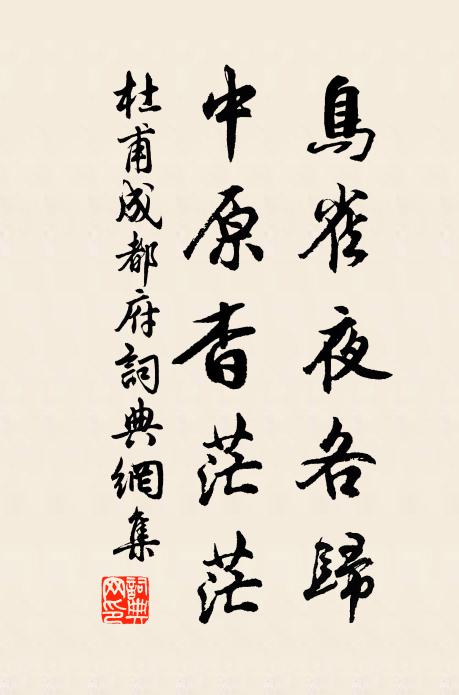 鳥雀夜各歸
中原杳茫茫
杜甫成都府詞典網集
詞典
网印